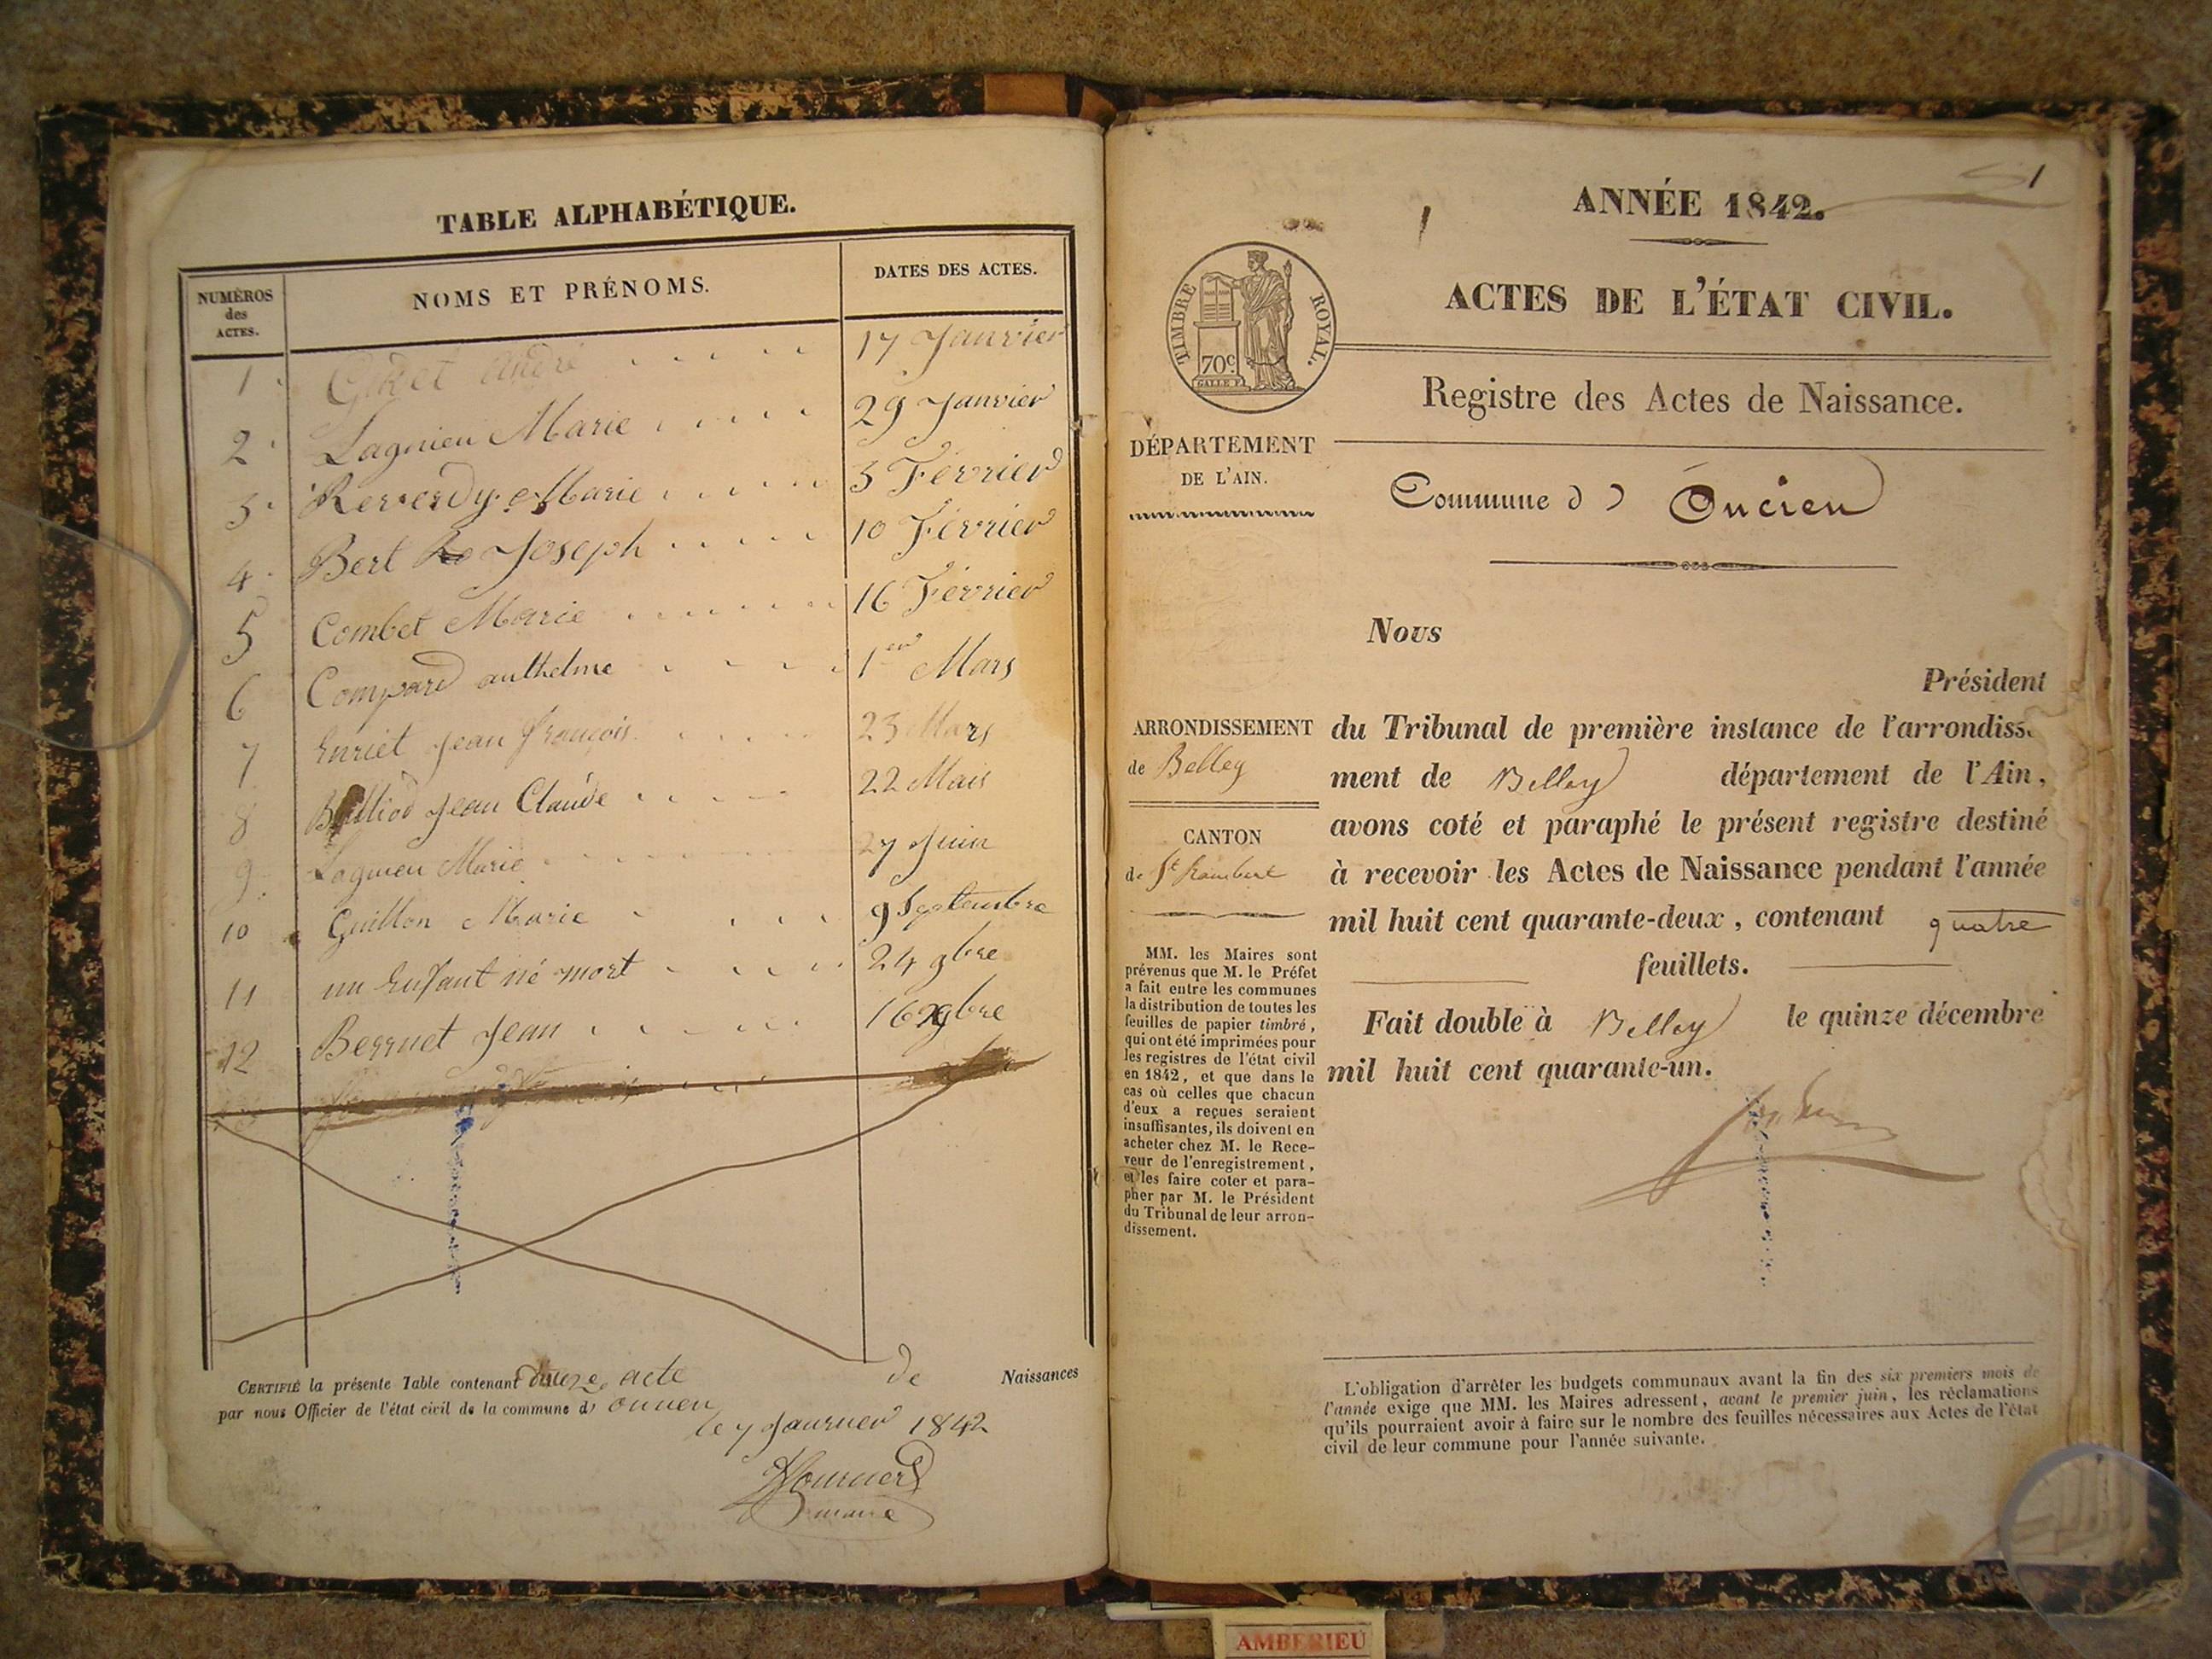 TABLE ALPHABÉTIQUE.
NUMÉROS des ACTES.
NOMS ET PRÉNOMS.
DATES DES ACTES.
1 André 17 Janvier
2 Lagnieu Marie 29 Janvier
3 Reverdy Marie 3 Février
4 Bert Joseph 10 Février
5 Combet Marie 16 Février
6 Compard anthelme 1er Mars
7 Enriet Jean François 23 Mars
8 Jean Claude 22 Mais
9 Lagnieu Marie 27 Juin
10 Guillon Marie 9 Septembre
11 un Enfant né mort 24 9bre
12 Berrnet Jean 16
CERTIFIÉ la présente Table contenant acte de Naissances
par nous Officier de l'état civil de la commune d'
le 7 Janvier 1842
maire
1
1
ANNÉE 1842.
ACTES DE L'ÉTAT CIVIL.
TIMBRE ROYAL.
70c
Registre des Actes de Naissance.
DÉPARTEMENT
DE L'AIN.
Commune d' Oncieu
Nous
Président
ARRONDISSEMENT
de Belley
CANTON
de St Rambert
du Tribunal de première instance de l'arrondisse-
ment de Belley département de l'Ain,
avons coté et paraphé le présent registre destiné
à recevoir les Actes de Naissance pendant l'année
mil huit cent quarante-deux, contenant quatre
feuillets.
Fait double à Belley le quinze décembre
mil huit cent quarante-un.
MM. les Maires sont
prévenus que M. le Préfet
a fait entre les communes
la distribution de toutes les
feuilles de papier timbré,
qui ont été imprimées pour
les registres de l'état civil
en 1842, et que dans le
cas où celles que chacun
d'eux a reçues seraient
insuffisantes, ils doivent en
acheter chez M. le Rece-
veur de l'enregistrement,
et les faire coter et para-
pher par M. le Président
du Tribunal de leur arron-
dissement.
L'obligation d'arrêter les budgets communaux avant la fin des six premiers mois de
l'année exige que MM. les Maires adressent, avant le premier juin, les réclamations
qu'ils pourraient avoir à faire sur le nombre des feuilles nécessaires aux Actes de l'état
civil de leur commune pour l'année suivante.
AMBERIEU